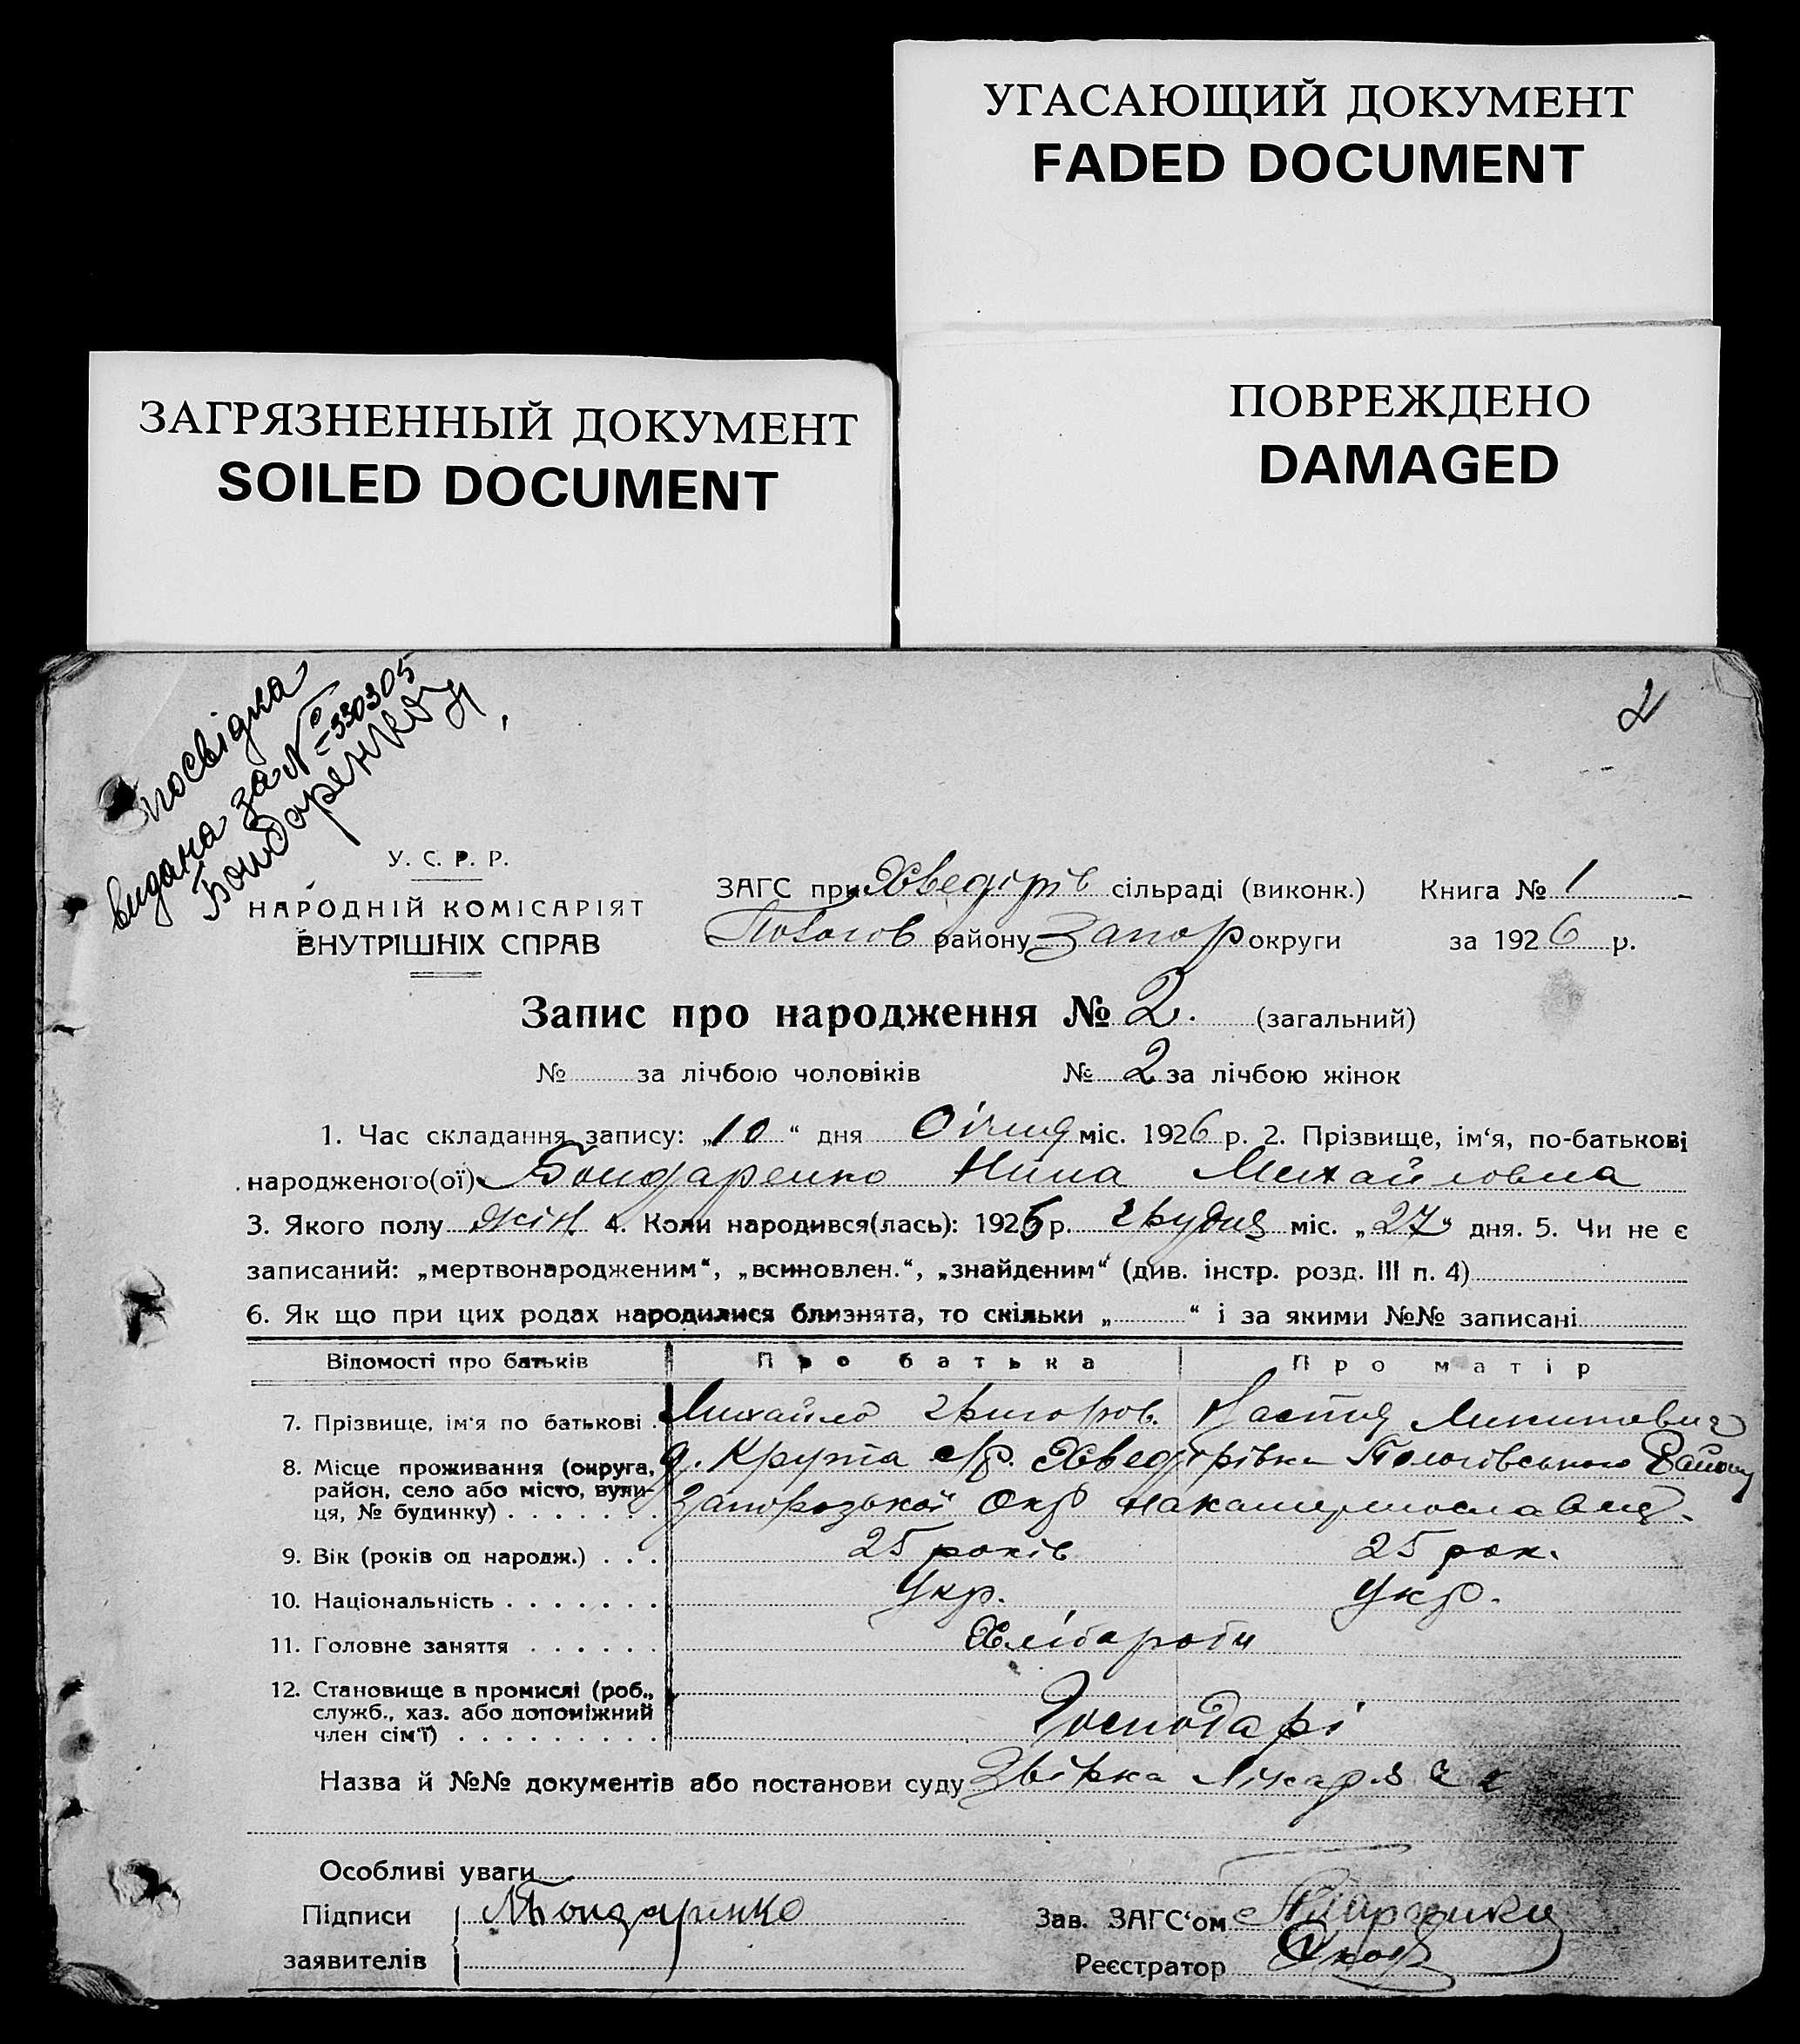 УГАСАЮЩИЙ ДОКУМЕНТ
FADED DOCUMENT
ЗАГРЯЗНЕННЫЙ ДОКУМЕНТ
SOILED DOCUMENT
ПОВРЕЖДЕНО
DAMAGED
2
посвідка
видана за № 330305
Бондаренко
У. С. Р. Р.
НАРОДНІЙ КОМІСАРІЯТ
ВНУТРІШНІХ СПРАВ
ЗАГС при Хведорів сільраді (виконк.) Книга № 1
Пологов району Запор округи за 1926 р.
Запис про народження № 2. (загальний)
№ за лічбою чоловіків № 2 за лічбою жінок
1. Час складання запису: „10“ дня Січня міс. 1926 р. 2. Прізвище, ім‘я, по-батькові
народженого(ої) Бондаренко Нина Михайловна
3. Якого полу жін 4. Коли народився(лась): 1925 р. грудня міс. „27“ дня. 5. Чи не є
записаний: „мертвонародженим“, „всиновлен.“, „знайденим“ (див. інстр. розд. III п. 4)
6. Як що при цих родах народилися близнята, то скільки „ “ і за якими №№ записані
Відомості про батьків Про батька Про матір
7. Прізвище, ім‘я по батькові Михайло Григоров. Настя Микитовна
8. Місце проживання (округа, район, село або місто, вулиця, № будинку) Крута с/р. Хведорівка Пологівського Району
Запорозької Окр на Катеринославщ.
9. Вік (років од народж.) 25 років 25 рок.
10. Національність Укр. Укр.
11. Головне заняття Хлібароби
12. Становище в промислі (роб.,
служб., хаз. або допоміжний
член сім‘ї) Господарі
Назва й №№ документів або постанови суду Звірка Лікаря
Особливі уваги
Підписи Бондаренко Зав. ЗАГС‘ом
заявителів Реєстратор